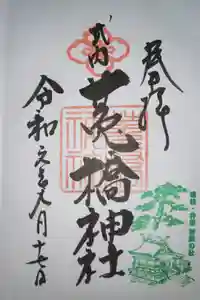 奉拝
式内
菟橋神社
令和元年九月十七日